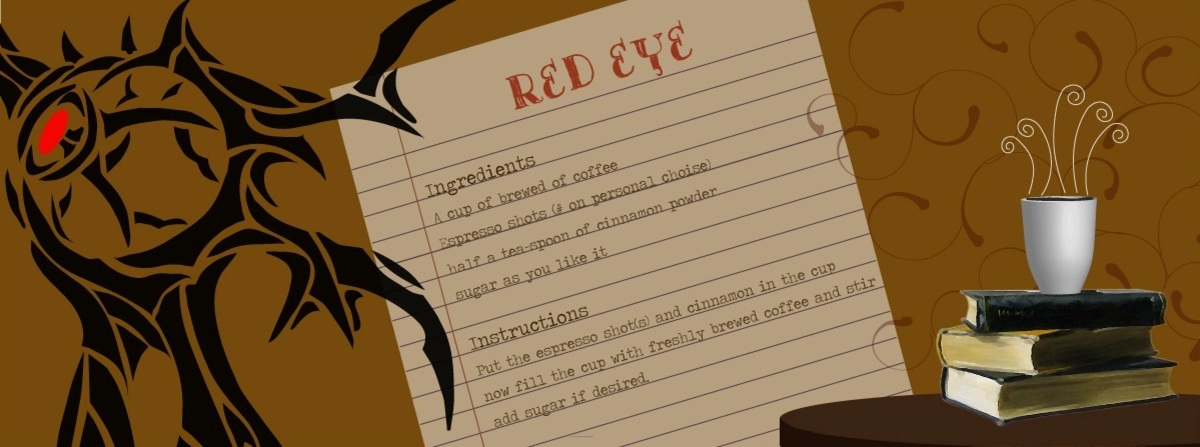 RED EYE
Ingredients
A cup of brewed of coffee
Espresso shots (# on personal choise)
half a tea-spoon of cinnamon powder
sugar as you like it
Instructions
Put the espresso shot(s) and cinnamon in the cup
now fill the cup with freshly brewed coffee and stir
add sugar if desired.